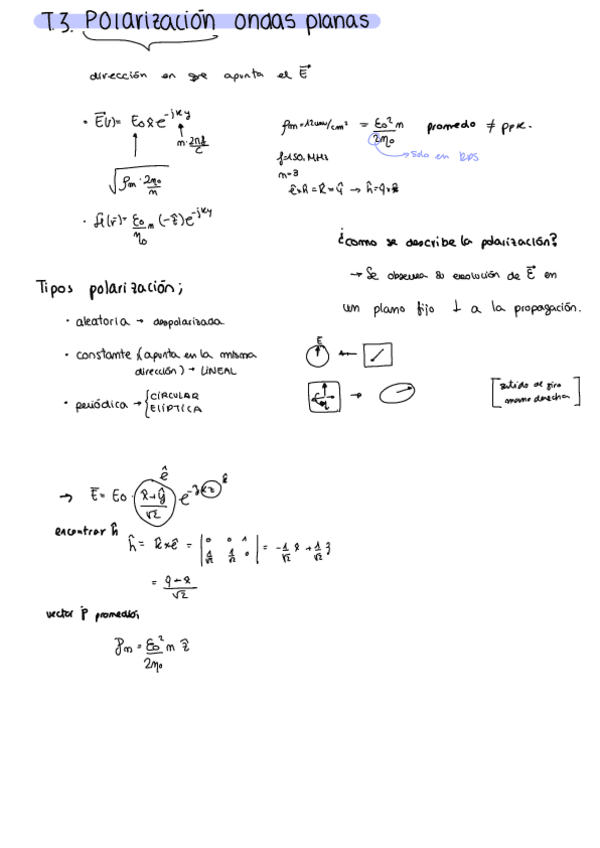 T.3. Polarización ondas planas
dirección en que apunta el E⃗
• E⃗(r)= E₀ x̂ e^-jky
n·2πf/c
√(℘m · 2η₀/n)
℘m = 12 /cm² = E₀² n / 2η₀ promedio ≠ pple.
→ solo en RPS
f=150 MHz
n=3
ê×ĥ = k̂ = ŷ →
• (r̄)= E₀ n / η₀ (-ẑ) e^-jky
¿como se describe la polarización?
→ Se observa su evolución de E⃗ en
un plano fijo ⊥ a la propagación.
Tipos polarización;
• aleatoria → despolarizada
• constante (apunta en la misma
dirección) → LINEAL
• periódica → { CIRCULAR
ELÍPTICA
E
[sentido de giro
mano derecha]
ê
→ E̅ = E₀ · (x̂+ŷ)/√2 e^-jkz
encontrar ĥ
ĥ = k̂×ê = | 0 0 1 | 1/√2 1/√2 0 | = -1/√2 x̂ + 1/√2 ŷ
= (ŷ - x̂)/√2
vector P promedio;
℘m = E₀² n / 2η₀ ẑ